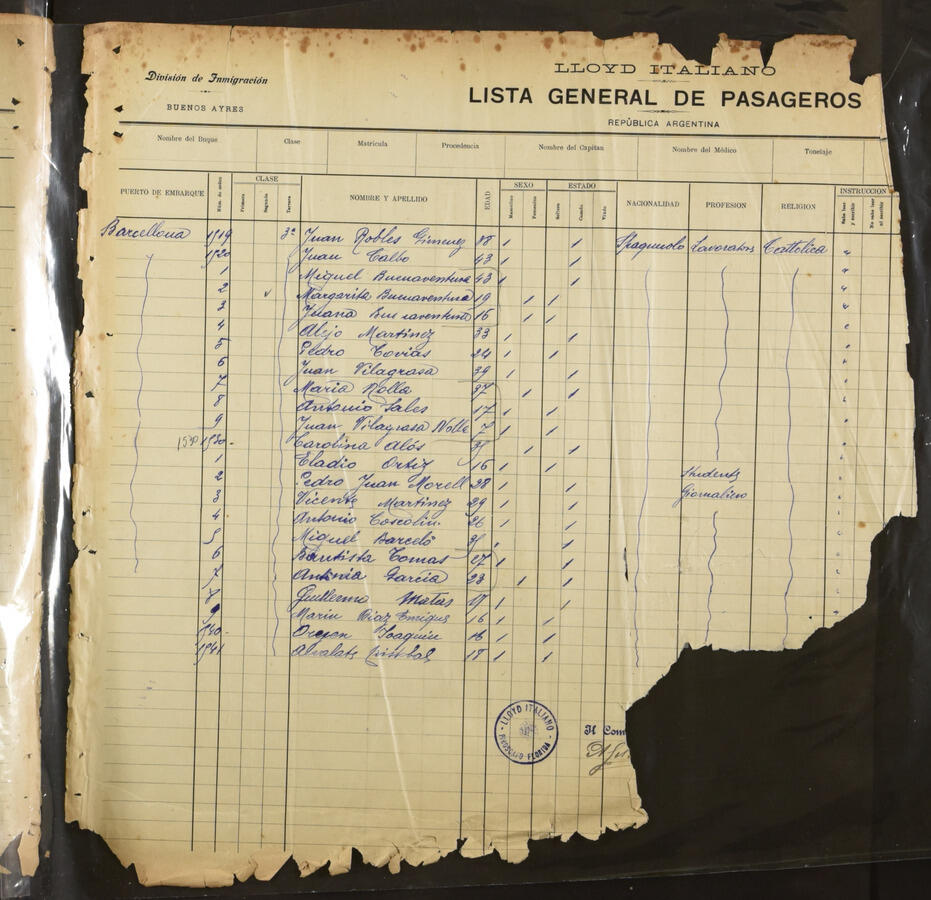 División de Inmigración
BUENOS AYRES
LLOYD ITALIANO
LISTA GENERAL DE PASAGEROS
REPÚBLICA ARGENTINA
Nombre del Buque Clase Matrícula Procedencia Nombre del Capitan Nombre del Médico Tonelaje
PUERTO DE EMBARQUE Núm. de orden CLASE Primera Segunda Tercera NOMBRE Y APELLIDO EDAD SEXO Masculino Femenino ESTADO Soltero Casado Viudo NACIONALIDAD PROFESION RELIGION INSTRUCCION Sabe leer y escribir No sabe leer ni escribir
Barcellona 1519 3ª Juan Robles Gimenez / / Spagnuolo Lavoratori Cattolica "
1520 Juan Calbo 43 / / "
1 Miguel Buenaventura 43 / / "
2 Margarita Buenaventura 19 / / "
3 Juana Buenaventura 16 / / "
4 Alejo Martinez 33 / / "
5 Pedro Tovias 24 / / "
6 Juan Vilagrasa 39 / / "
7 Maria Nolla 37 / / "
8 Antonio Sales 17 / / "
9 Juan Vilagrasa Nolla 7 / / "
1530 1530 Carolina Alós / / "
1 Eladio Ortiz 16 / / Studente "
2 Pedro Juan Morell 28 / / Giornaliero "
3 Vicente Martinez 29 / / "
4 Antonio Coscolin 26 / / "
5 Miguel Barceló / / "
6 Bautista Tomas 27 / / "
7 Antonia Garcia 23 / / "
Guillermo Matas / / "
9 Marin Diaz Enrique 16 / / "
1540 Joaquin 16 / /
1541 18 / /
LLOYD ITALIANO
PIROSCAFO FLORIDA
Il Com